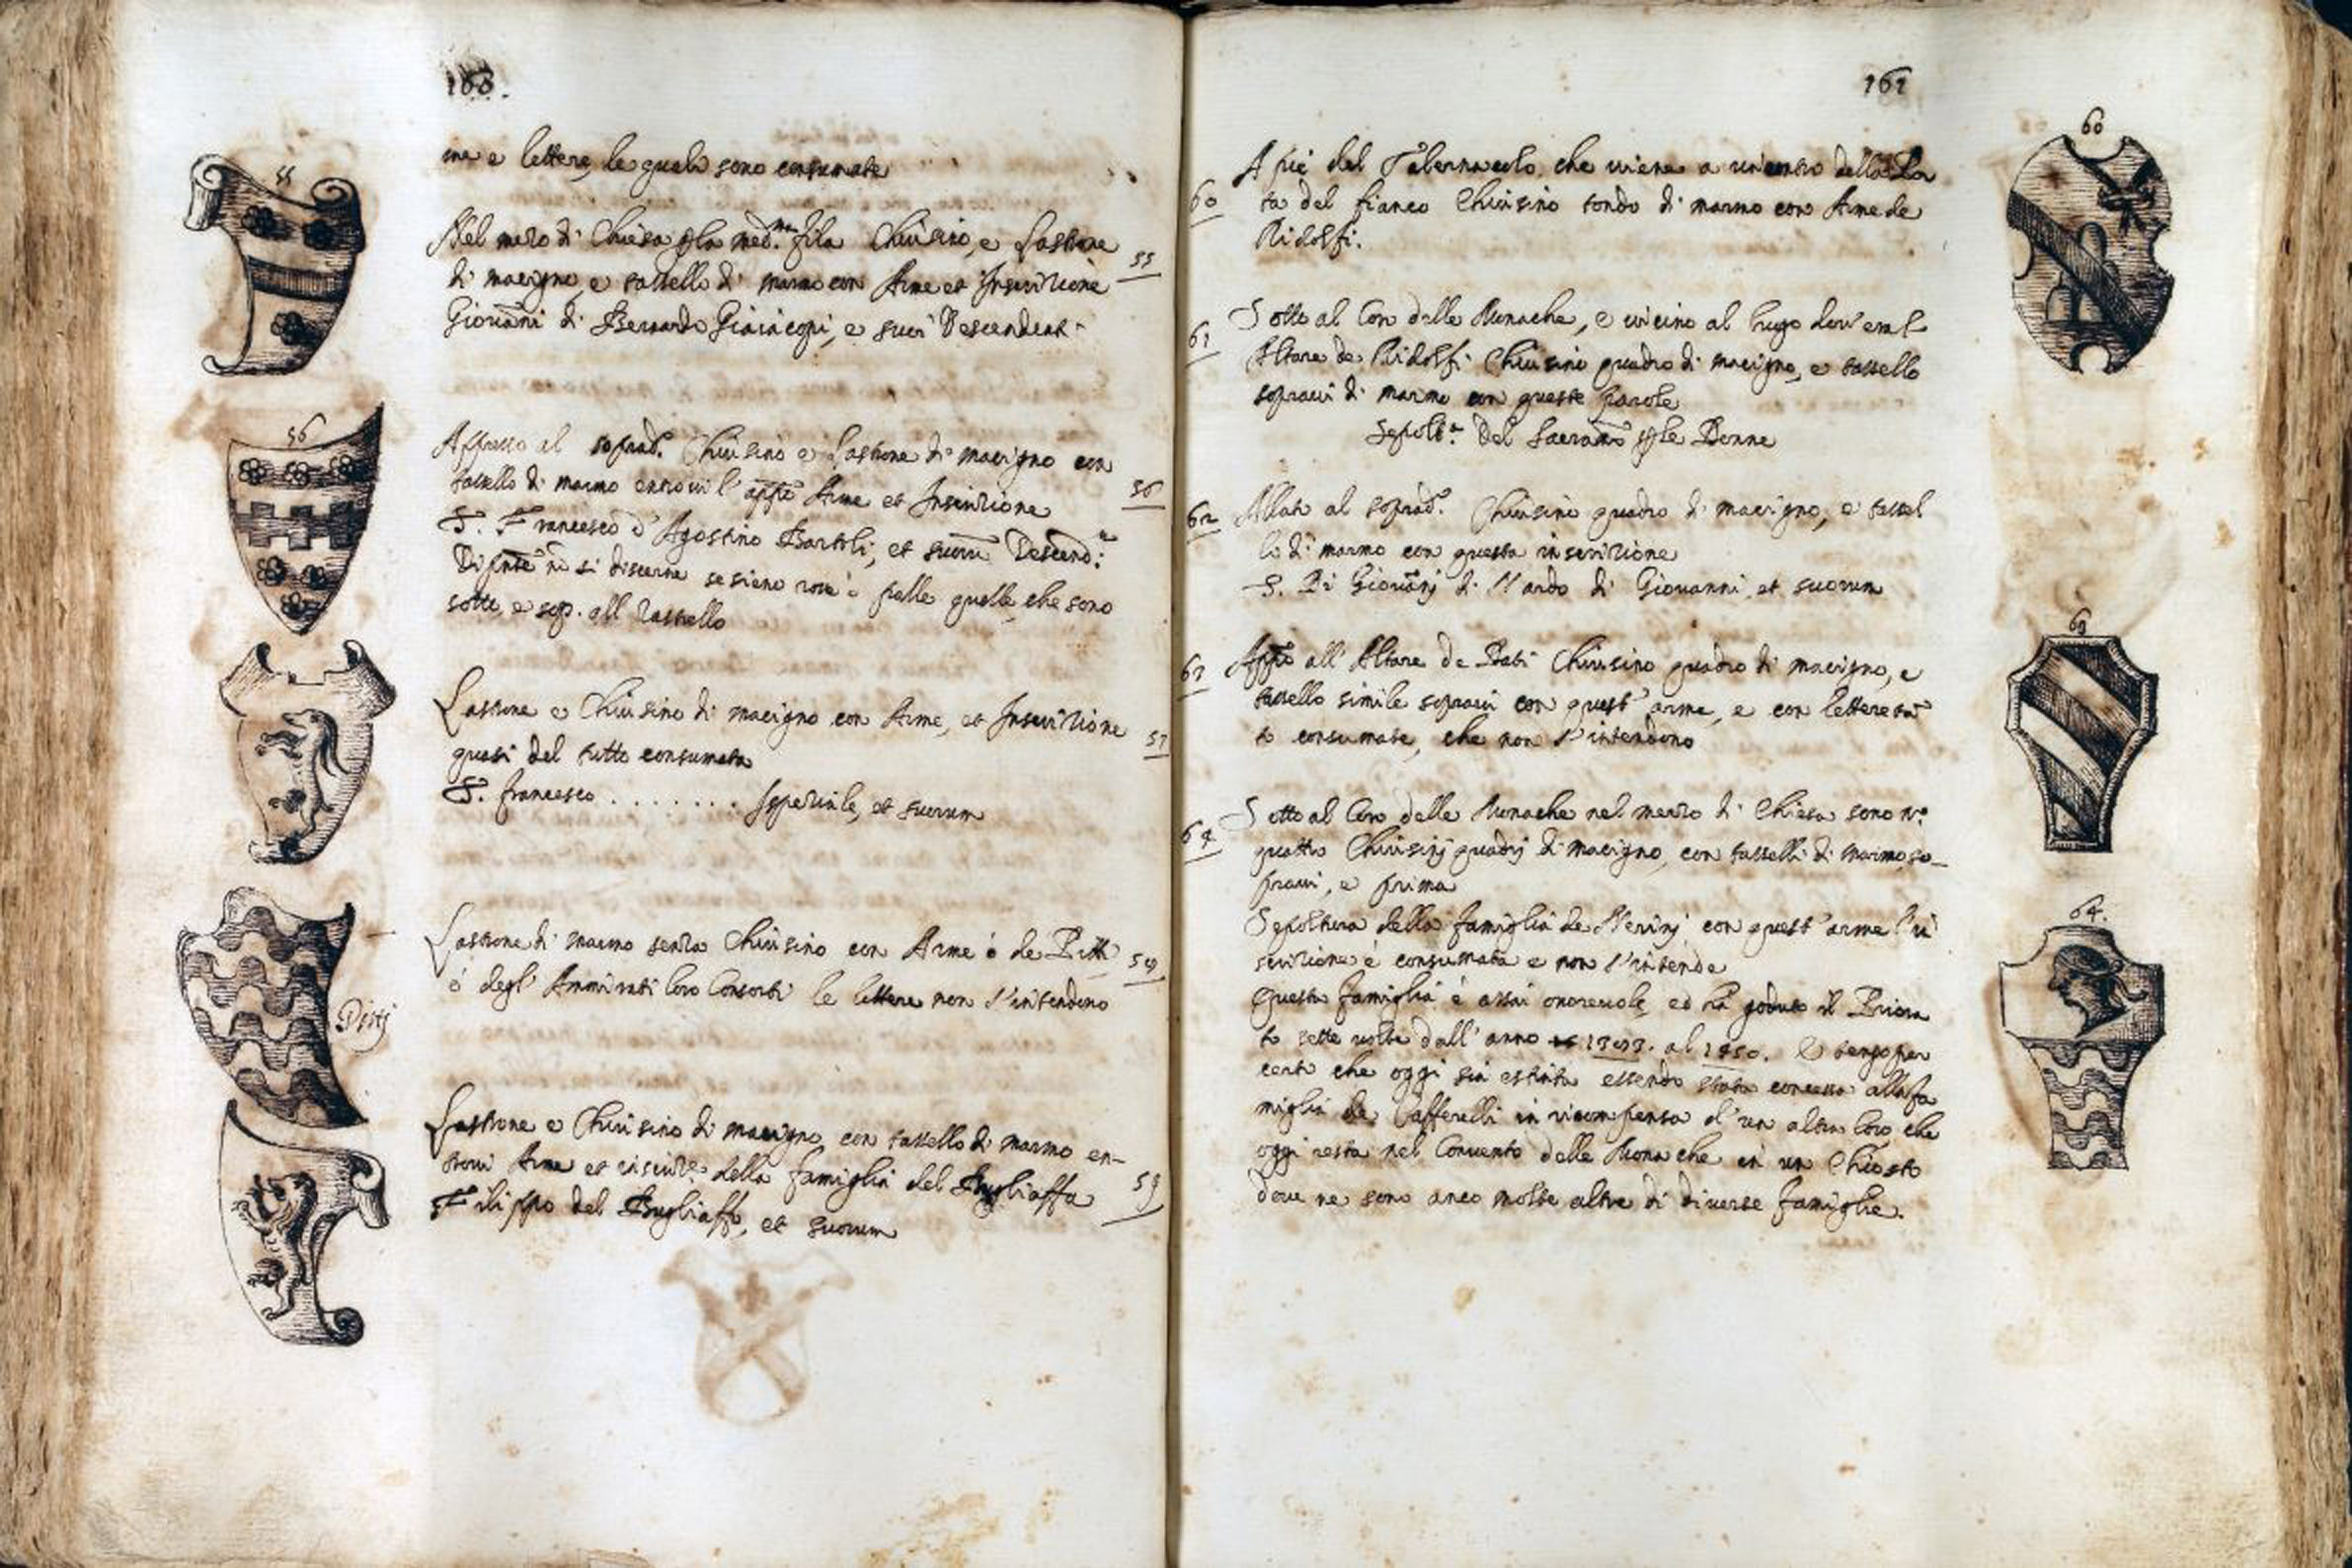 160.
me e lettere, le quali sono consumate
55
Nel mezo di Chiesa p la med.ma fila Chiusino, e Lastrone
di macigno, e tassello di marmo con Arme et Inscrizione
55
Giovanni di Bernardo Giacicopi, e suoi Descendent
56
Appresso al soprad.o Chiusino e Lastrone di macigno con
tassello di marmo entrovi l'app.o Arme et Inscrizione
56
S. Francesco d'Agostino Bartoli, et suorum Descend.
si discerne se sieno rose o palle quelle, che sono
sotto, e sop. all
Lastrone e Chiusino di macigno con Arme, et Inscrizione
57
quasi del tutto consumata
S. francesco . . . . . . . Speziale, et suorum
Lastrone di marmo senza Chiusino con Arme ò de Pitti
ò degl' Ammirati loro Consorti le lettere non s'intendono
Lastrone e Chiusino di macigno, con tassello di marmo en-
trovi Arme et inscriz.e della famiglia del Bugliaffa
59
Filippo del Bugliaffa, et suorum
161
60
A piè del Tabernacolo, che viene a rincontro della Por
60
ta del fianco Chiusino tondo di marmo con Arme de
Ridolfi.
Sotto al Coro delle Monache, e vicino al luogo dov'era l'
61
Altare de Ridolfi Chiusino quadro di macigno, e tassello
sopravi di marmo con queste parole
Sepolt.a del Sacram.o p le Donne
62
Allato al soprad.o Chiusino quadro di macigno, e tassel
lo di marmo con questa inscrizione
S. Di Giovanj di Nardo di Giovanni, et suorum
63
63
App.o all' Altare de Chiusino quadro di macigno, e
tassello simile sopravi con quest' arme, e con lettere tan
to consumate, che non s'intendono
64
Sotto al Coro delle Monache nel mezzo di Chiesa sono n.o
quattro Chiusinj quadrj di macigno, con tasselli di marmo so-
pravi, e prima
64.
Sepoltura della famiglia de Nerinj con quest' arme l'in
scrizione è consumata e non s'intende
Questa famiglia è assai onorevole, ed hà goduto il Priora
to sette volte dall' anno 1393. al 1450. E tengo per
certo che oggi sia estinta essendo stata concessa alla fa
miglia de Cafferelli in ricompensa d'un altra loro che
oggi resta nel Convento delle Monache in un Chiostro
dove ne sono anco molte altre di diverse famiglie.